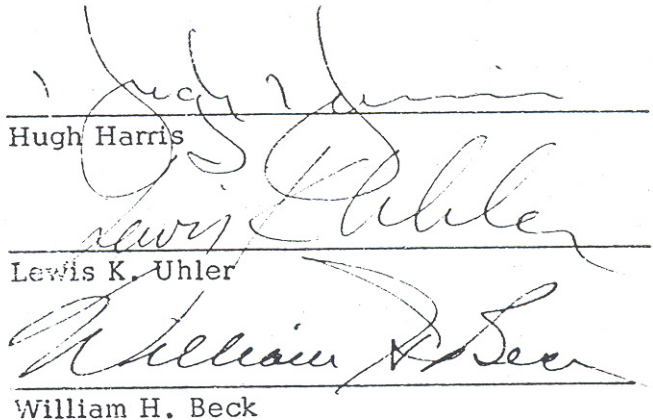 Hugh Harris
Lewis K Uhler
Lewis K. Uhler
William H. Beck
William H. Beck